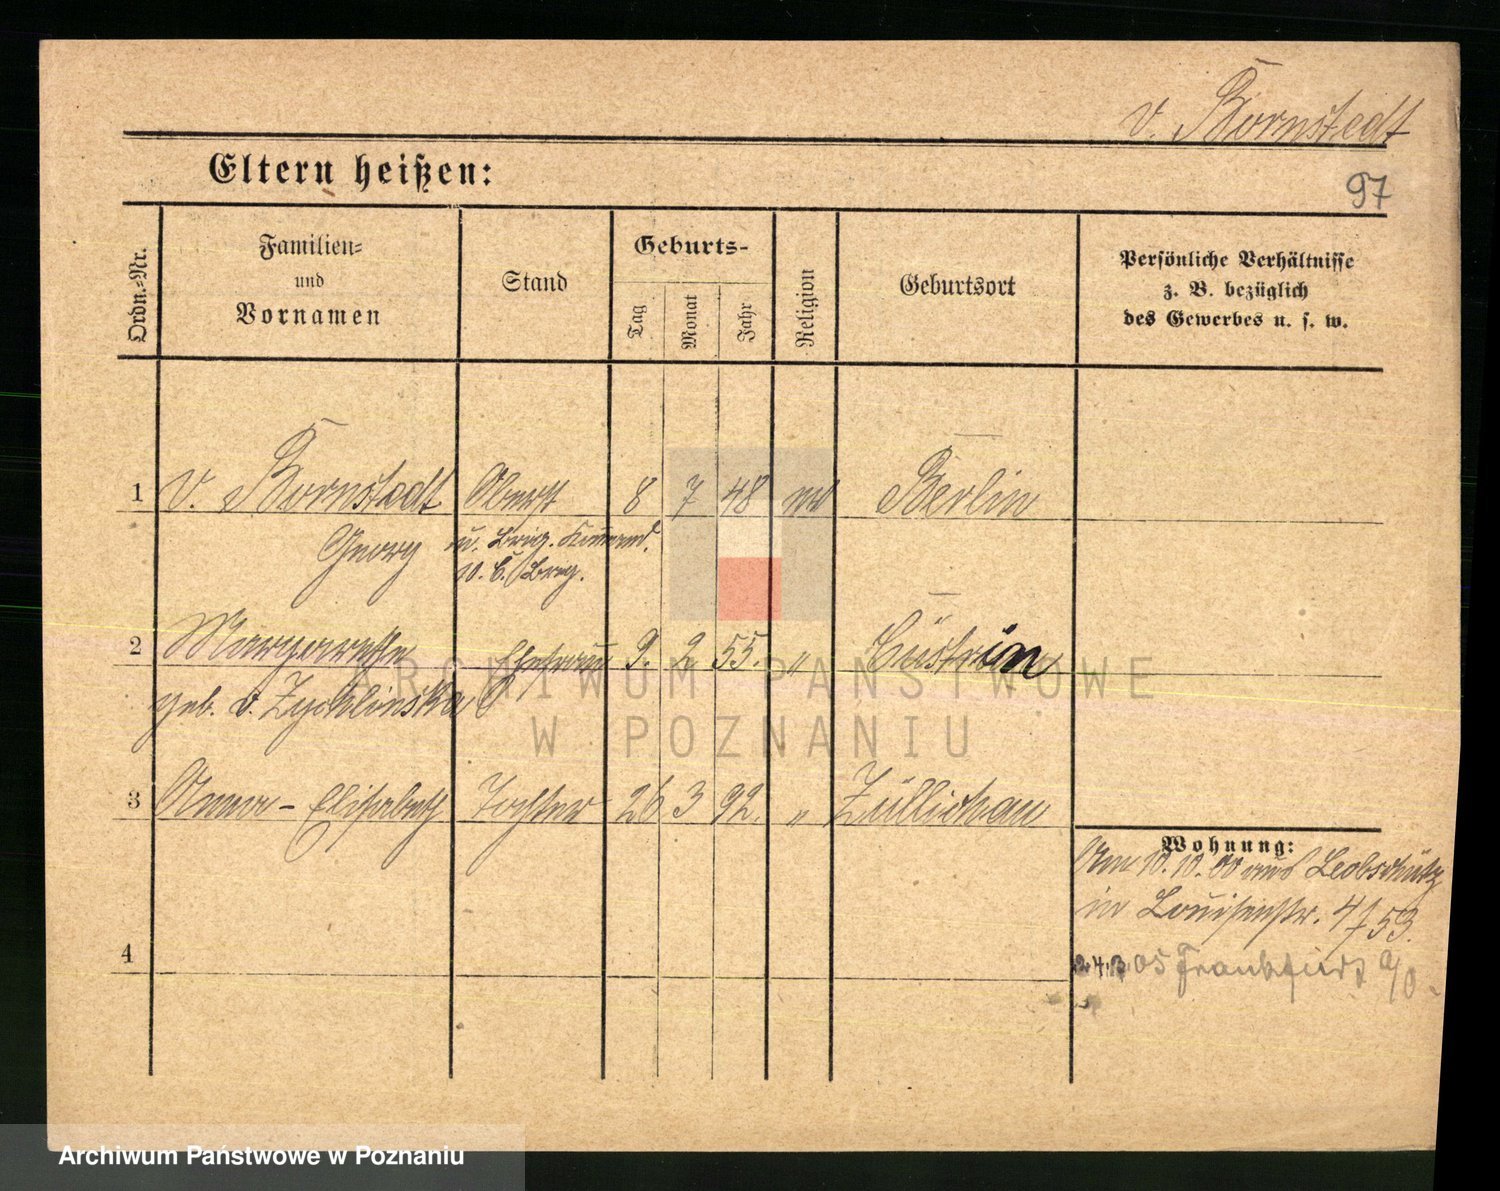 v. Bornstedt
Eltern heißen:
97
Ordn.-Nr.
Familien-
und
Vornamen
Stand
Geburts-
Tag
Monat
Jahr
Religion
Geburtsort
Persönliche Verhältnisse
z. B. bezüglich
des Gewerbes u. s. w.
1 v. Bornstedt Oberst 8 7 48 ev Berlin
Georg u. Brig. Kommd.
Brig.
2 Margarethe Ehefrau 9. 2 55. " Cüstrin
geb. v. Zychlinska
3 Anna-Elisabeth Tochter 26 3 92. " Züllichau
Wohnung:
Am 10.10.00 aus Leobschütz
in Louisenstr. 4/53.
05 Frankfurt a/O.
4
ARCHIWUM PAŃSTWOWE
W POZNANIU
Archiwum Państwowe w Poznaniu